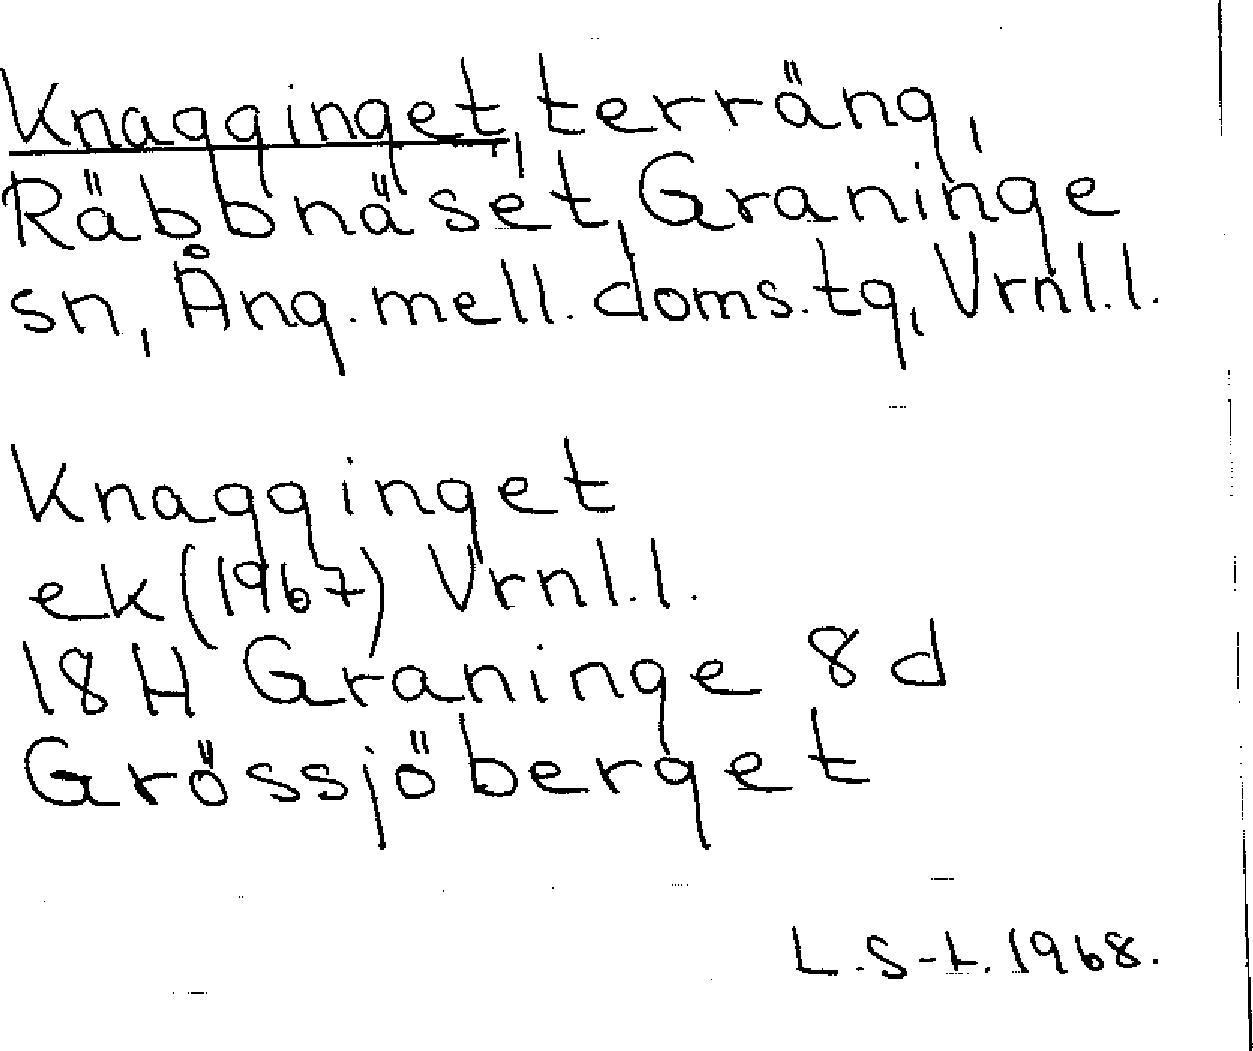 Knagginget, terräng,
Räbbnäset, Graninge
sn, Ång. mell. doms. tg, Vrnl.l.
Knagginget
ek (1967) Vrnl.l.
18H Graninge 8d
Grössjöberget
L.S-L. 1968.